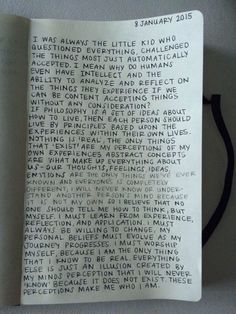 8 JANUARY 2015
I WAS ALWAYS THE LITTLE KID WHO
QUESTIONED EVERYTHING, CHALLENGED
THE THINGS MOST JUST AUTOMATICALLY
ACCEPTED. I MEAN WHY DO HUMANS
EVEN HAVE INTELLECT AND THE
ABILITY TO ANALYZE AND REFLECT ON
THE THINGS THEY EXPERIENCE IF WE
CAN BE CONTENT ACCEPTING THINGS
WITHOUT ANY CONSIDERATION?
IF PHILOSOPHY IS A SET OF IDEAS ABOUT
HOW TO LIVE, THEN EACH PERSON SHOULD
LIVE BY PRINCIPLES BASED UPON THE
EXPERIENCES WITHIN THEIR OWN LIVES.
NOTHING IS 'REAL'. THE ONLY THINGS
THAT 'EXIST' ARE MY PERCEPTIONS OF MY
OWN EXPERIENCES. ABSTRACT CONCEPTS
ARE WHAT MAKE UP EVERYTHING ABOUT
US - OUR THOUGHTS, FEELINGS, IDEAS,
EMOTIONS ARE THE ONLY THINGS WE'VE EVER
KNOWN AND EVERYONE IS COMPLETELY
DIFFERENT. I WILL NEVER KNOW OR UNDER-
STAND ANOTHER PERSON'S MIND BECAUSE
IT IS NOT MY OWN SO I BELIEVE THAT NO
ONE SHOULD TELL ME HOW TO THINK, BUT
MYSELF. I MUST LEARN FROM EXPERIENCE,
REFLECTION, AND APPLICATION. I MUST
ALWAYS BE WILLING TO CHANGE. MY
PERSONAL BELIEFS MUST EVOLVE AS MY
JOURNEY PROGRESSES. I MUST WORSHIP
MYSELF, BECAUSE I AM THE ONLY THING
THAT I KNOW TO BE REAL. EVERYTHING
ELSE IS JUST AN ILLUSION CREATED BY
MY MINDS PERCEPTION THAT I WILL NEVER
'KNOW' BECAUSE IT DOES NOT EXIST. THESE
PERCEPTIONS MAKE ME WHO I AM.